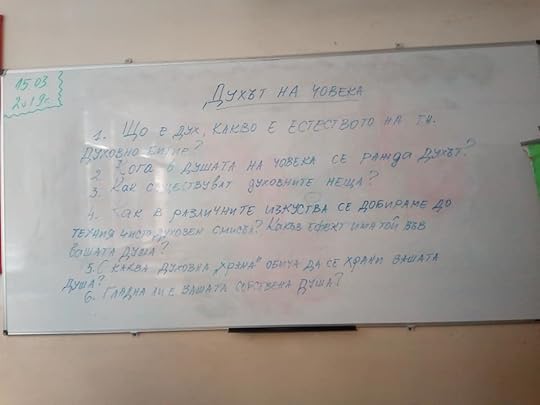 15.03
2019г.
ДУХЪТ НА ЧОВЕКА
1. Що е дух, какво е естеството на т.н.
духовно битие?
2. Кога в душата на човека се ражда духът?
3. Как съществуват духовните неща?
4. Как в различните изкуства се добираме до
техния чисто духовен смисъл? Какъв ефект има той във
вашата душа?
5. С каква духовна „храна" обича да се храни вашата
душа?
6. Гладна ли е вашата собствена душа?